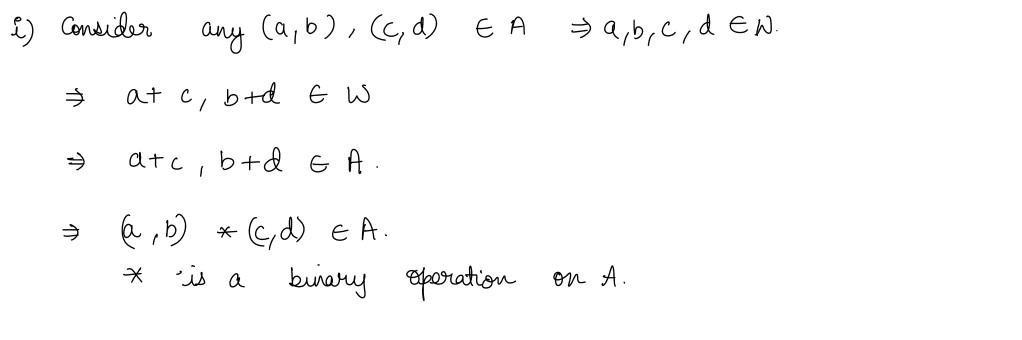 i) Consider any (a,b), (c,d) ∈ A ⇒ a,b,c,d ∈ W.
⇒ a+c, b+d ∈ W
⇒ a+c, b+d ∈ A.
⇒ (a,b) * (c,d) ∈ A.
* is a binary operation on A.